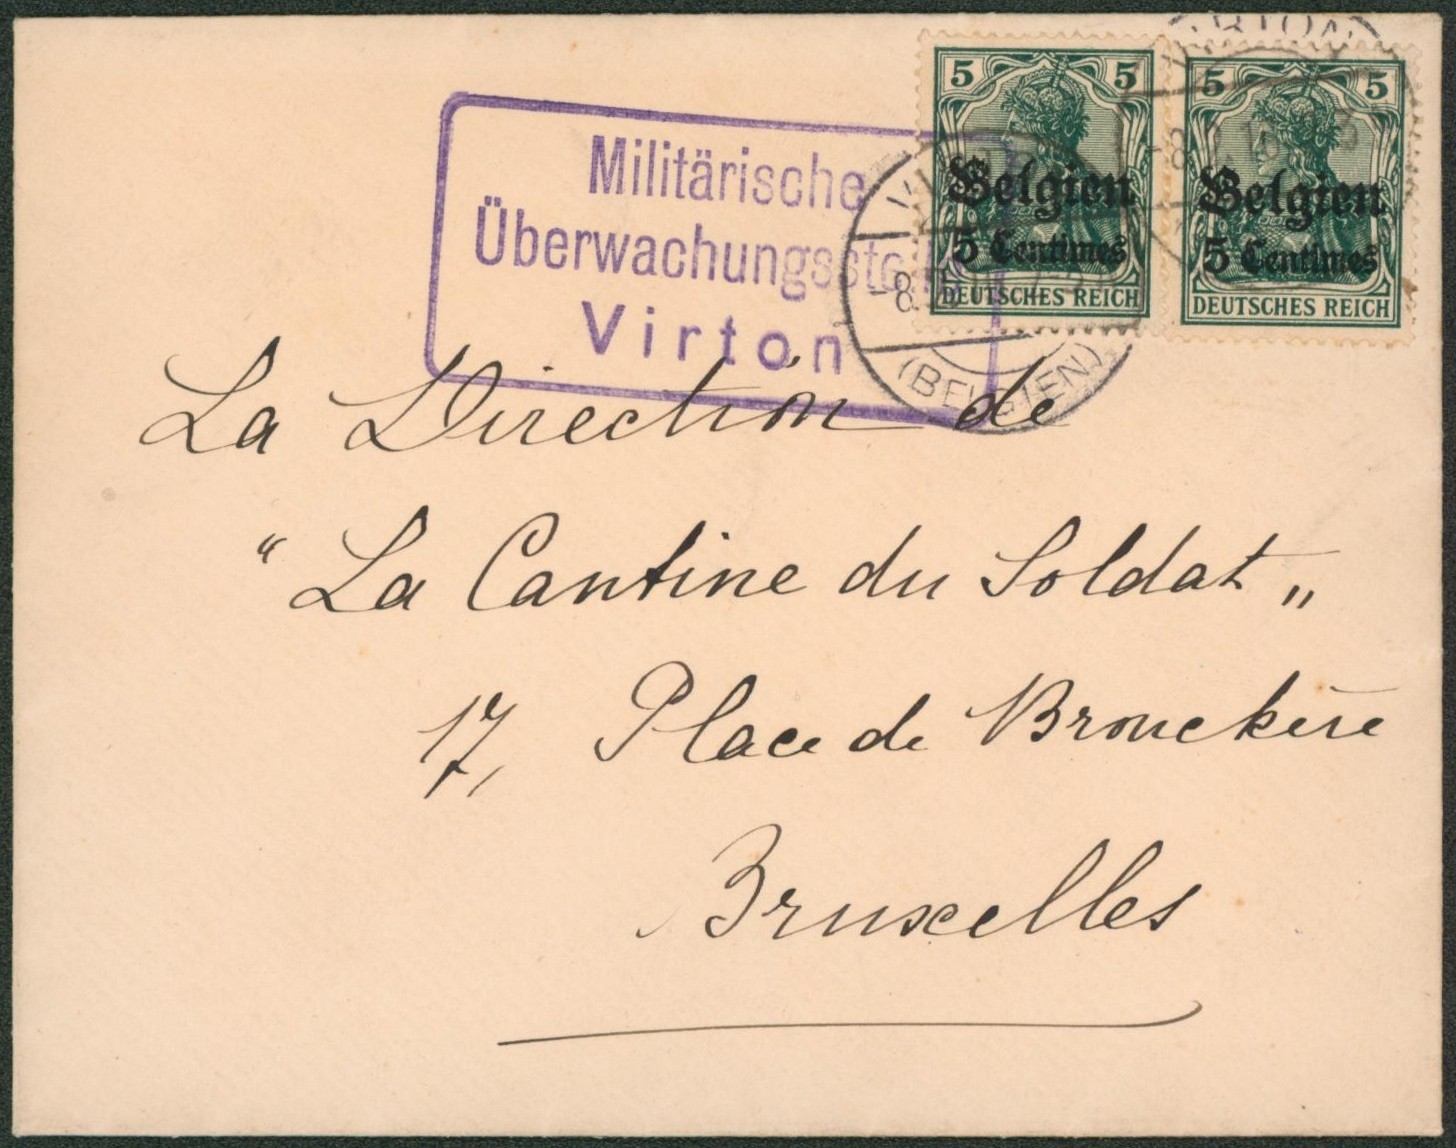 Militärische
Überwachungsstelle
Virton
5 5
Belgien
5 Centimes
DEUTSCHES REICH
5 5
Belgien
5 Centimes
DEUTSCHES REICH
(BELGIEN)
La Direction de
“ La Cantine du Soldat „
17, Place de Brouckère
Bruxelles